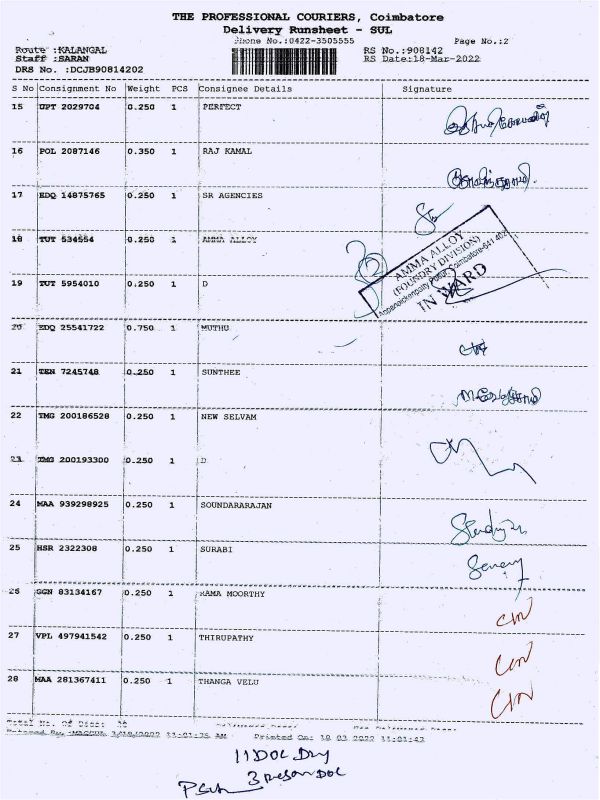 THE PROFESSIONAL COURIERS, Coimbatore
Delivery Runsheet - SUL
Phone No.:0422-3505555 Page No.:2
Route :KALANGAL RS No.:908142
Staff :SARAN RS Date:18-Mar-2022
DRS No. :DCJB90814202
S No Consignment No Weight PCS Consignee Details Signature
15 UPT 2029704 0.250 1 PERFECT
16 POL 2087146 0.350 1 RAJ KAMAL
17 EDQ 14875765 0.250 1 SR AGENCIES
18 TUT 534554 0.250 1 AMMA ALLOY
AMMA ALLOY
(FOUNDRY DIVISION)
Coimbatore-641 402
IN WARD
19 TUT 5954010 0.250 1 D
20 EDQ 25541722 0.750 1 MUTHU
21 TEN 7245748 0.250 1 SUNTHEE
22 TMG 200186528 0.250 1 NEW SELVAM
23 TMG 200193300 0.250 1 D
24 MAA 939298925 0.250 1 SOUNDARARAJAN
25 HSR 2322308 0.250 1 SURABI
26 GGN 83134167 0.250 1 RAMA MOORTHY
27 VPL 497941542 0.250 1 THIRUPATHY
28 MAA 281367411 0.250 1 THANGA VELU
Printed On: 18 03 2022 11:01:43